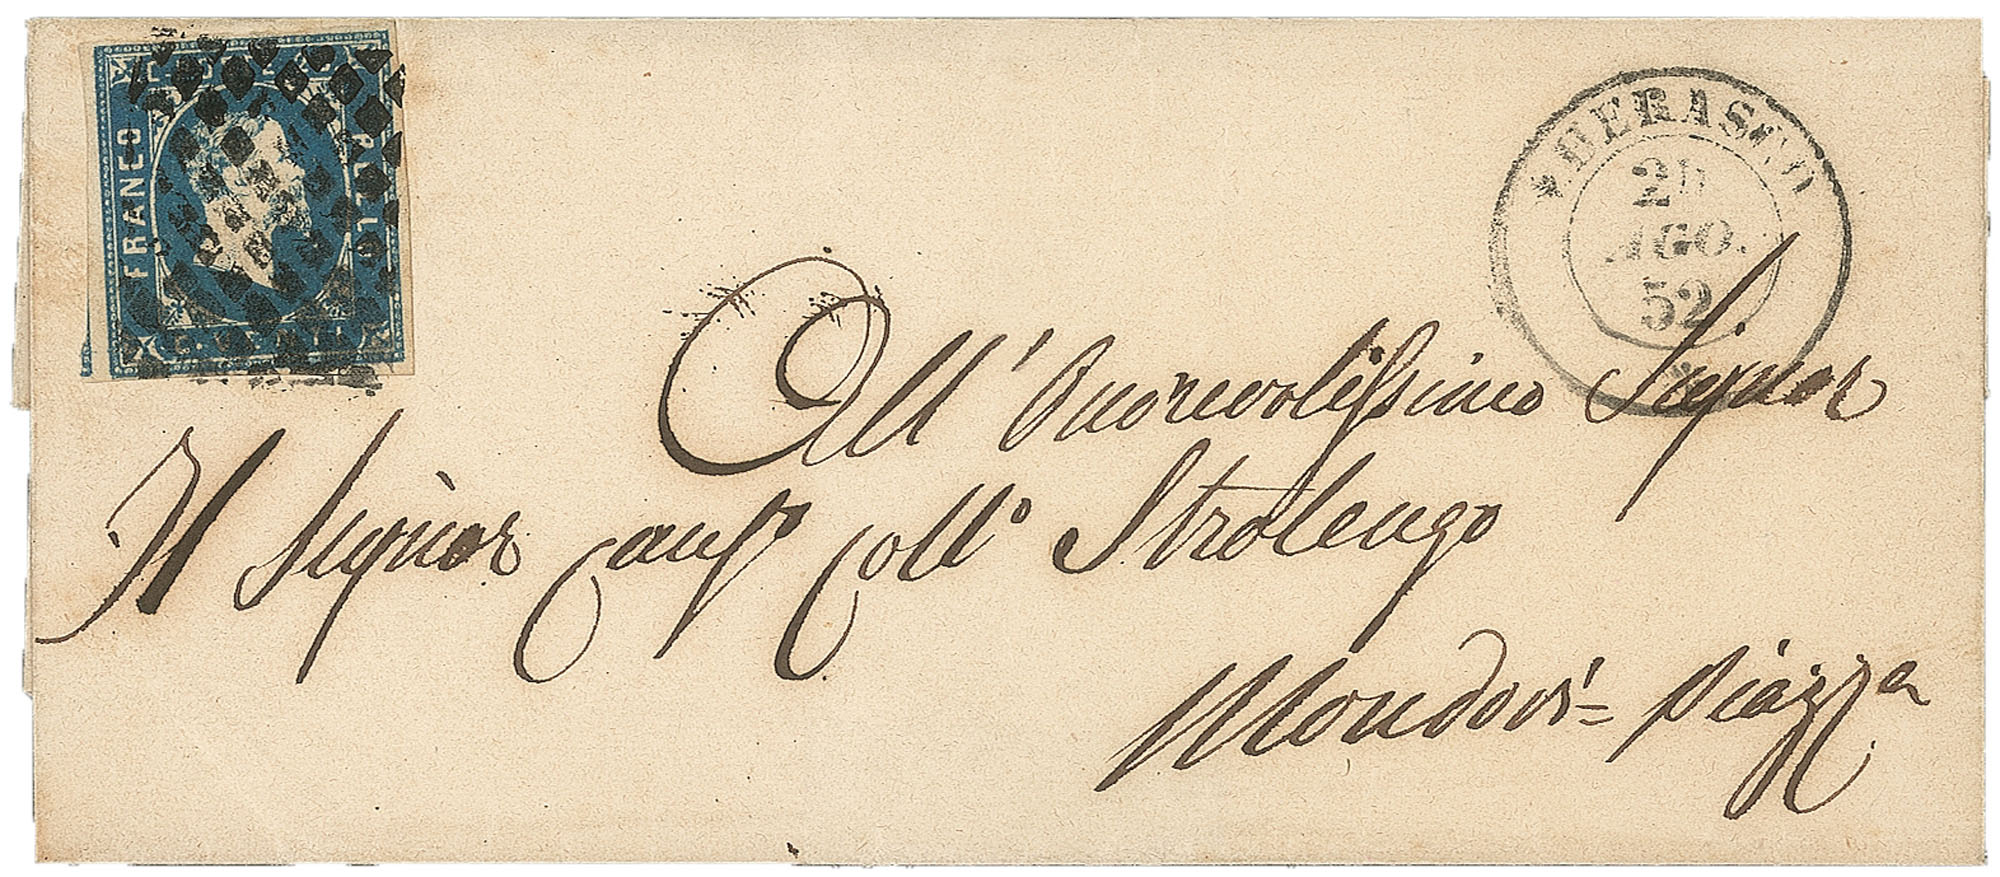 FRANCO
BOLLO
C. VENTI
DERASCO
AGO.
52
All' Onorevolissimo Signor
Il Signor Coll.o Stralengo
Mondovì = Piazza